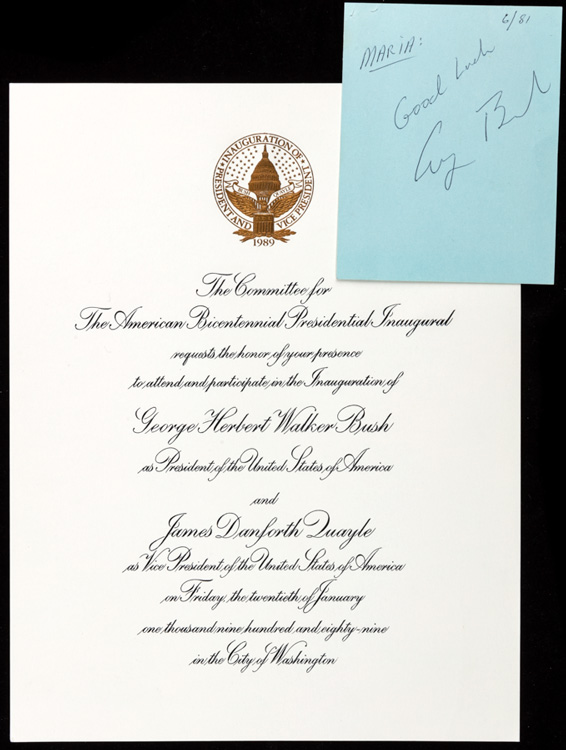 6/81
MARIA:
Good Luck
G Bush
INAUGURATION OF
PRESIDENT AND
VICE PRESIDENT
BUSH
QUAYLE
1989
The Committee for
The American Bicentennial Presidential Inaugural
requests the honor of your presence
to attend and participate in the Inauguration of
George Herbert Walker Bush
as President of the United States of America
and
James Danforth Quayle
as Vice President of the United States of America
on Friday, the twentieth of January
one thousand nine hundred and eighty-nine
in the City of Washington